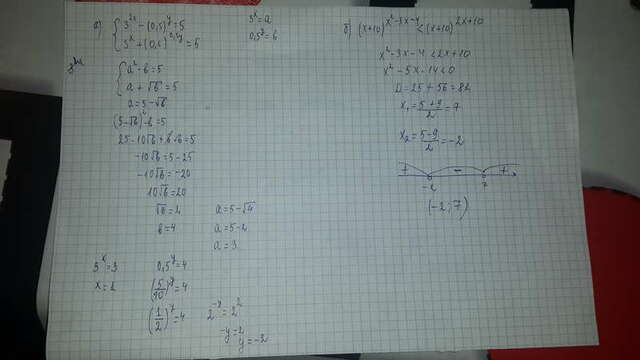 а) { 3^{2x} - (0,5)^y = 5
3^x + (0,5)^{0,5y} = 5
3^x = a
0,5^y = b
{ a² - b = 5
a + √b = 5
a = 5 - √b
(5 - √b)² - b = 5
25 - 10√b + b - b = 5
-10√b = 5 - 25
-10√b = -20
10√b = 20
√b = 2
b = 4
a = 5 - √4
a = 5 - 2
a = 3
3^x = 3
x = 1
0,5^y = 4
(5/10)^y = 4
(1/2)^y = 4
2^{-y} = 2²
-y = 2
y = -2
б) (x+10)^{x²-3x-4} < (x+10)^{2x+10}
x² - 3x - 4 < 2x + 10
x² - 5x - 14 < 0
D = 25 + 56 = 81
x₁ = (5+9)/2 = 7
x₂ = (5-9)/2 = -2
+ - +
-2 7
(-2; 7)